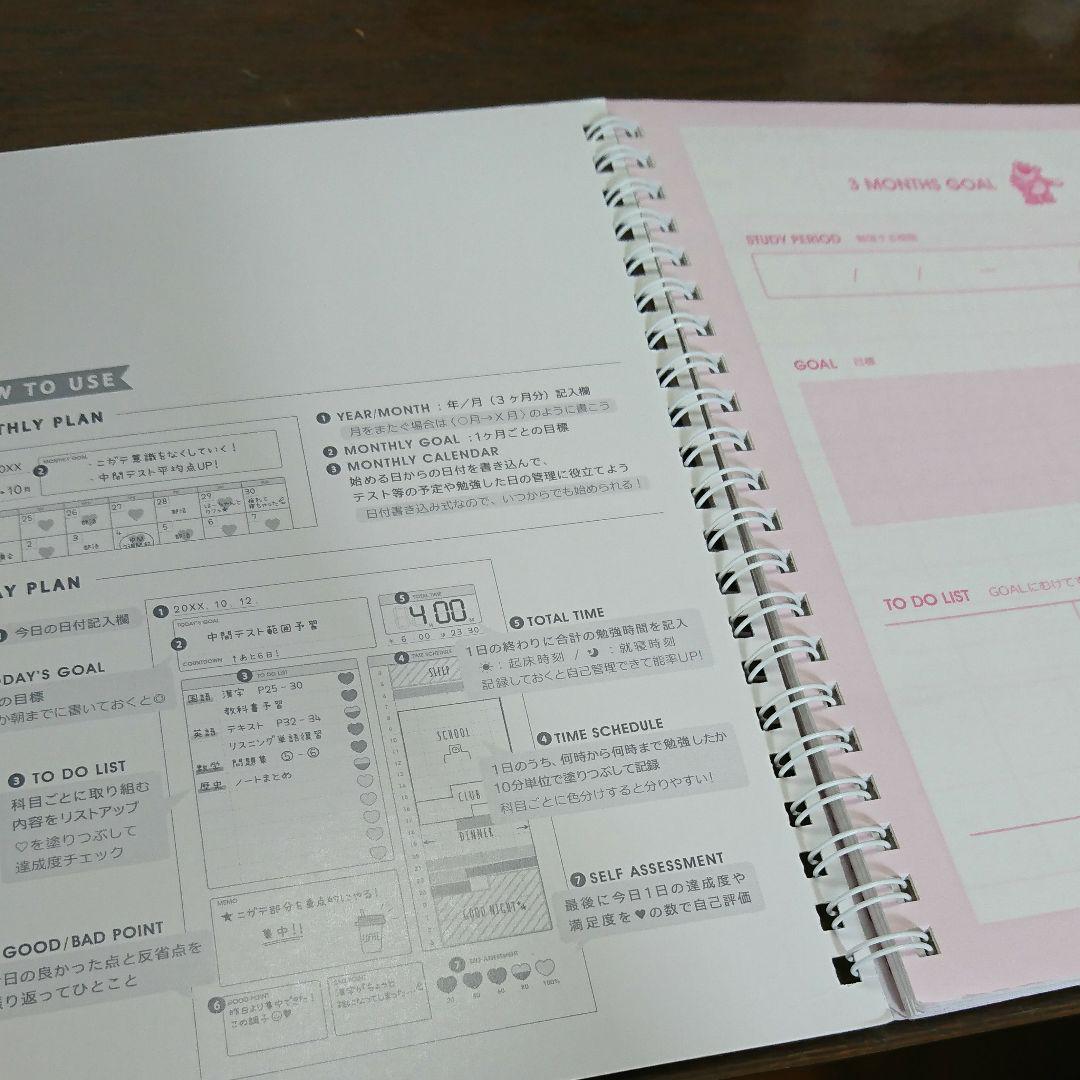 W TO USE
THLY PLAN
0XX
→10月
②
MONTHLY GOAL
・ニガテ意識をなくしていく！
・中間テスト平均点UP！
25 26 27 28 29 30
部活
2 3 4 5 6 7
部活
部活
① YEAR/MONTH : 年／月（3ヶ月分）記入欄
月をまたぐ場合は〈○月→X月〉のように書こう
② MONTHLY GOAL : 1ヶ月ごとの目標
③ MONTHLY CALENDAR
始める日からの日付を書き込んで、
テスト等の予定や勉強した日の管理に役立てよう
日付書き込み式なので、いつからでも始められる！
AY PLAN
今日の日付記入欄
ODAY'S GOAL
の目標
か朝までに書いておくと☺
③ TO DO LIST
科目ごとに取り組む
内容をリストアップ
♡を塗りつぶして
達成度チェック
GOOD/BAD POINT
日の良かった点と反省点を
り返ってひとこと
① 20XX. 10. 12.
TODAY'S GOAL
② 中間テスト範囲予習
COUNTDOWN
あと6日！
③ TO DO LIST
国語 漢字 P25-30
教科書予習
英語 テキスト P32-34
リスニング単語復習
数学 問題集 ⑤-⑥
歴史 ノートまとめ
MEMO
★ニガテ部分を重点的にやる！
集中！！
⑥ GOOD POINT
昨日より集中できた！
この調子☺♥
⑤ TOTAL TIME
4.00
6 00 23 30
④ TIME SCHEDULE
SLEEP
SCHOOL
CLUB
DINNER
GOOD NIGHT
⑦ SELF ASSESSMENT
20 40 60 80 100%
⑤ TOTAL TIME
1日の終わりに合計の勉強時間を記入
☀：起床時刻 / ☾：就寝時刻
記録しておくと自己管理できて能率UP！
④ TIME SCHEDULE
1日のうち、何時から何時まで勉強したか
10分単位で塗りつぶして記録
科目ごとに色分けすると分りやすい！
⑦ SELF ASSESSMENT
最後に今日1日の達成度や
満足度を♥の数で自己評価
3 MONTHS GOAL
STUDY PERIOD
/ / ―
GOAL 目標
TO DO LIST GOALにむけてす